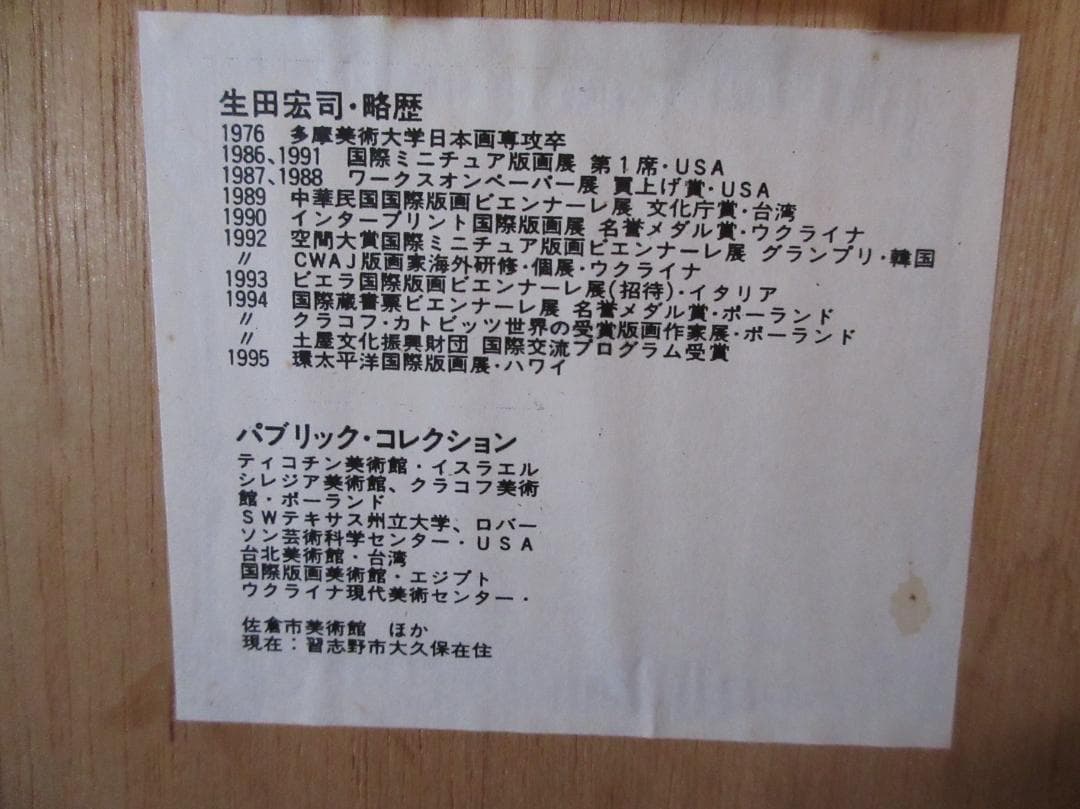 生田宏司・略歴
1976 多摩美術大学日本画専攻卒
1986、1991 国際ミニチュア版画展 第1席・USA
1987、1988 ワークスオンペーパー展 買上げ賞・USA
1989 中華民国国際版画ビエンナーレ展 文化庁賞・台湾
1990 インタープリント国際版画展 名誉メダル賞・ウクライナ
1992 空間大賞国際ミニチュア版画ビエンナーレ展 グランプリ・韓国
〃 CWAJ版画家海外研修・個展・ウクライナ
1993 ビエラ国際版画ビエンナーレ展(招待)・イタリア
1994 国際蔵書票ビエンナーレ展 名誉メダル賞・ポーランド
〃 クラコフ・カトビッツ世界の受賞版画作家展・ポーランド
〃 土屋文化振興財団 国際交流プログラム受賞
1995 環太平洋国際版画展・ハワイ
パブリック・コレクション
ティコチン美術館・イスラエル
シレジア美術館、クラコフ美術
館・ポーランド
SWテキサス州立大学、ロバー
ソン芸術科学センター・USA
台北美術館・台湾
国際版画美術館・エジプト
ウクライナ現代美術センター・
佐倉市美術館 ほか
現在：習志野市大久保在住